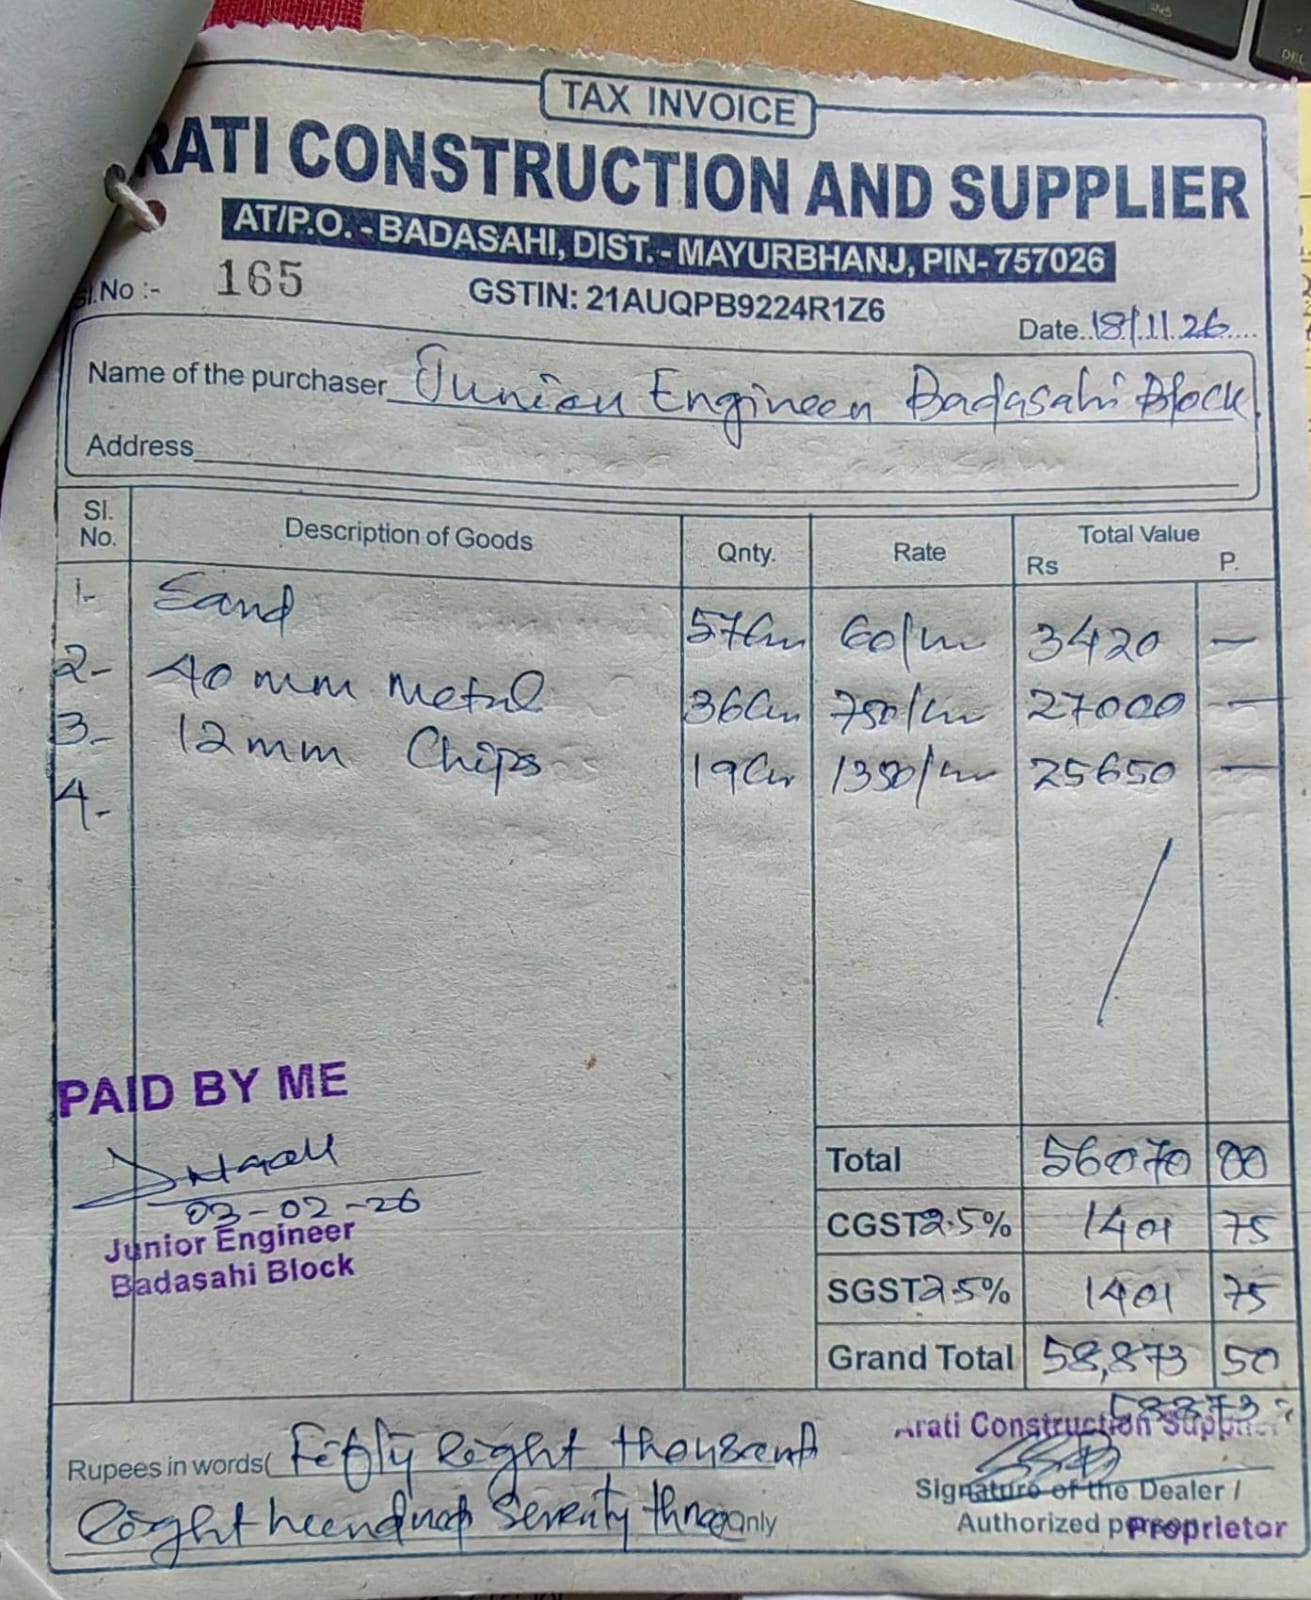 TAX INVOICE
RATI CONSTRUCTION AND SUPPLIER
AT/P.O. - BADASAHI, DIST. - MAYURBHANJ, PIN- 757026
Sl.No :- 165
GSTIN: 21AUQPB9224R1Z6
Date..18/11.26....
Name of the purchaser Junior Engineer Badasahi Block
Address
Sl. No. Description of Goods Qnty. Rate Total Value Rs P.
1- Sand 57Cm 60/cm 3420 —
2- 40 mm Metal 36Cm 750/cm 27000 —
3- 12 mm Chips 19Cm 1350/cm 25650 —
4-
PAID BY ME
03-02-26
Junior Engineer
Badasahi Block
Total 56070 00
CGST 2.5% 1401 75
SGST 2.5% 1401 75
Grand Total 58,873 50
58873
Arati Construction Supplier
Rupees in words( Fifty eight thousand
eight hundred Seventy three Only
Signature of the Dealer /
Authorized person
Proprietor